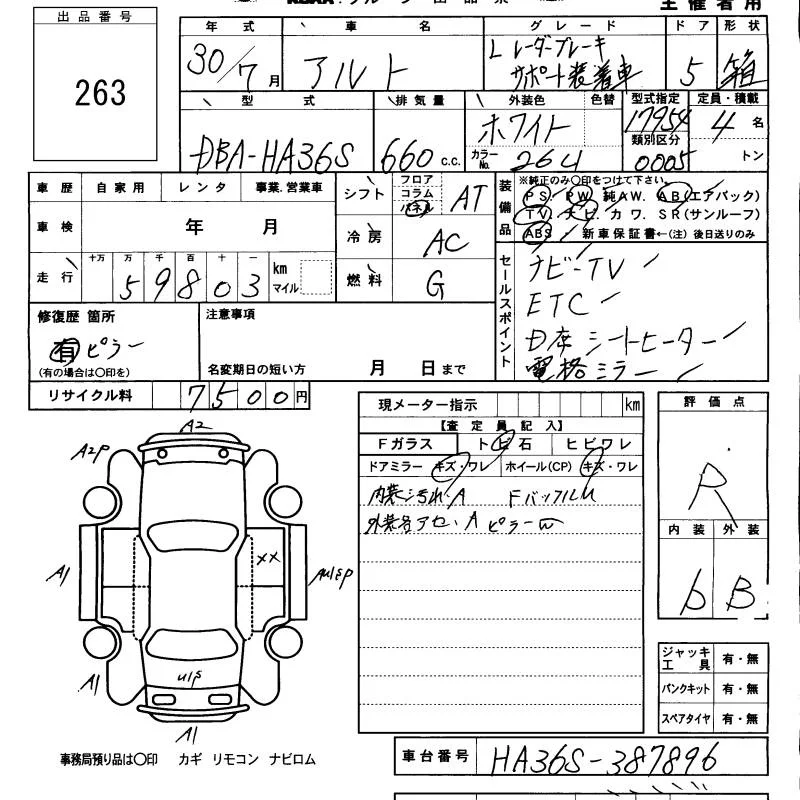 主催者用
出品番号
263
年式 車名 グレード ドア 形状
30/7月 アルト Lレーダーブレーキ
サポート装着車 5 箱
型式 排気量 外装色 色替 型式指定 定員・積載
DBA-HA36S 660 c.c. ホワイト 17954 4名
類別区分
カラーNo. 26U 0005 トン
車歴 自家用 レンタ 事業.営業車
車検 年 月
走行 十万 万 千 百 十 一
59803 km
マイル
シフト フロア コラム パネル AT
冷房 AC
燃料 G
装備品
※純正のみ○印をつけて下さい。
PS. PW. 純AW. AB(エアバック)
TV. ナビ. カワ. SR(サンルーフ)
ABS ・ 新車保証書←(注)後日送りのみ
セールスポイント
ナビ-TV
ETC
D席シートヒーター
電格ミラー
修復歴 箇所
有 ピラー
(有の場合は○印を)
注意事項
名変期日の短い方 月 日まで
リサイクル料 7500円
現メーター指示 km
【査定員記入】
Fガラス トビ石 ヒビワレ
ドアミラー キズ・ワレ ホイール(CP) キズ・ワレ
内装汚れ・A FバックルU
外装各アセ・A ピラーW
評価点
R
内装 外装
b B
ジャッキ
工具 有・無
パンクキット 有・無
スペアタイヤ 有・無
A2
A2P
A1
XX
AU1SP
A1
U1S
A1
事務局預り品は○印 カギ リモコン ナビロム
車台番号 HA36S-387896